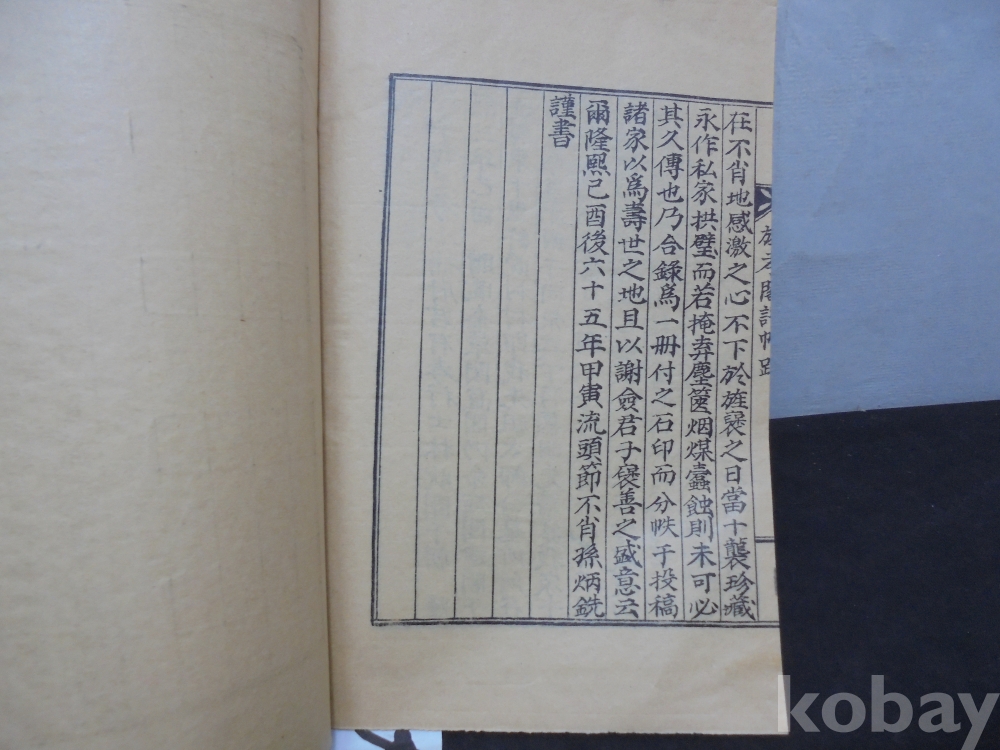 在不肖地感激之心不下於旌褒之日當十襲珍藏
永作私家拱璧而若掩弃塵篋烟煤蠹蝕則未可必
其久傳也乃合錄爲一冊付之石印而分帙于投稿
諸家以爲壽世之地且以謝僉君子褒善之盛意云
爾隆熙己酉後六十五年甲寅流頭節不肖孫炳銑
謹書
kobay